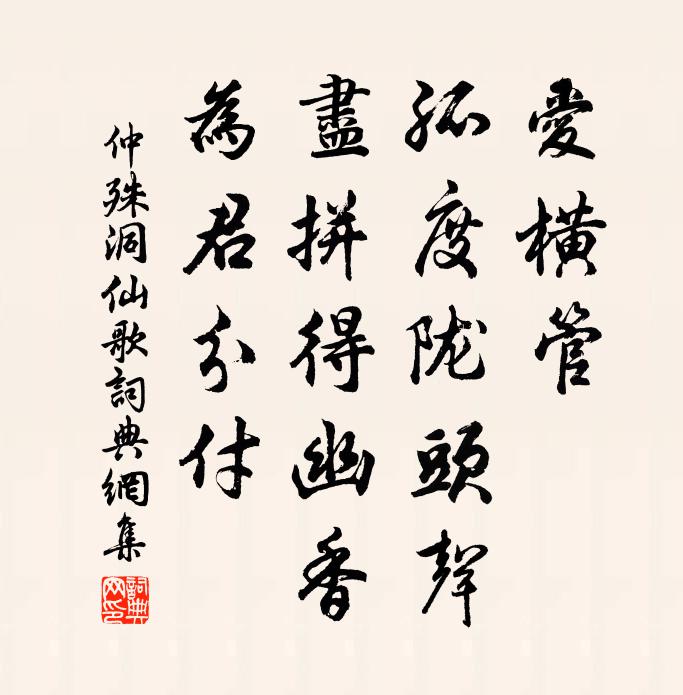 愛橫管
孤度陇頭聲
盡拼得幽香
為君分付
仲殊洞仙歌詞典網集
詞典網印